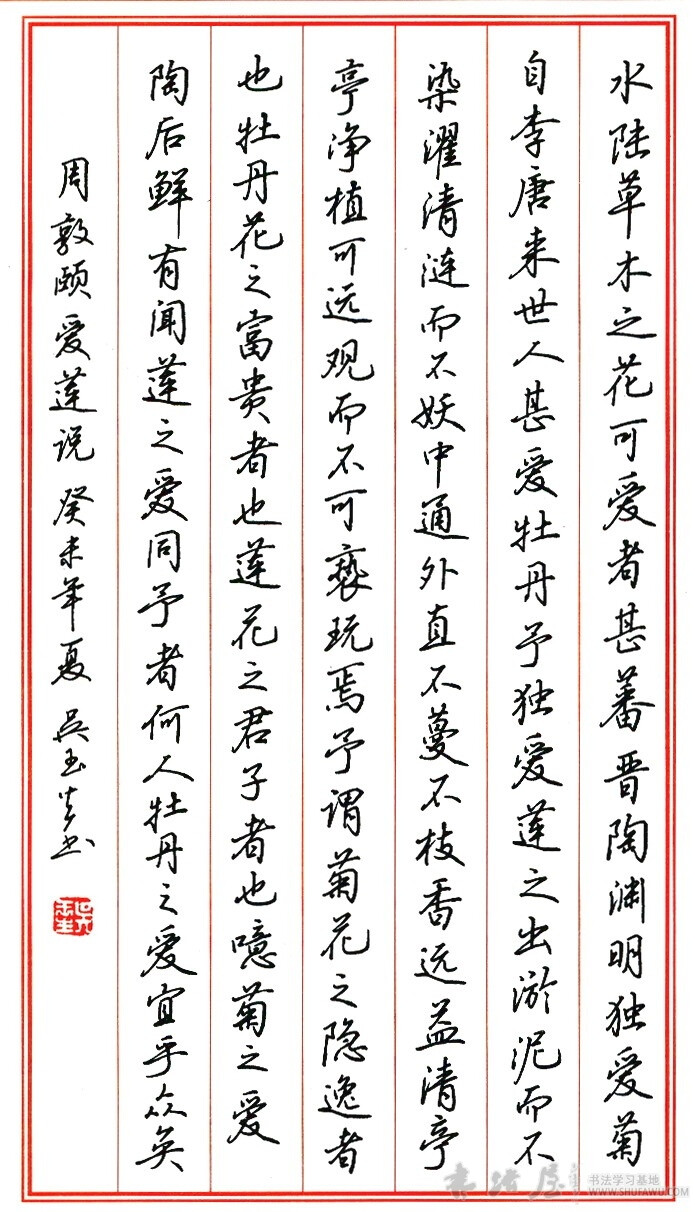 水陆草木之花可爱者甚蕃晋陶渊明独爱菊
自李唐来世人甚爱牡丹予独爱莲之出淤泥而不
染濯清涟而不妖中通外直不蔓不枝香远益清亭
亭净植可远观而不可亵玩焉予谓菊花之隐逸者
也牡丹花之富贵者也莲花之君子者也噫菊之爱
陶后鲜有闻莲之爱同予者何人牡丹之爱宜乎众矣
周敦颐爱莲说癸未年夏吴玉生书
书法屋
书法学习基地
WWW.SHUFAWU.COM